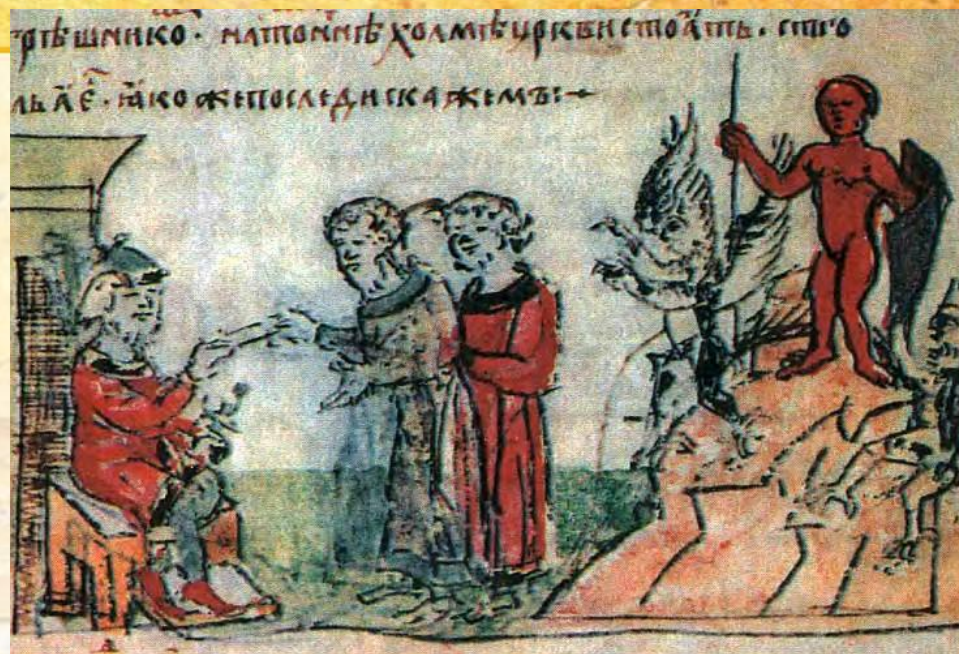 рѣшнико · натомнѣ холмѣ црквн стоꙗть · стго
льꙗ є҃ · ꙗкоже последи скажемъ :